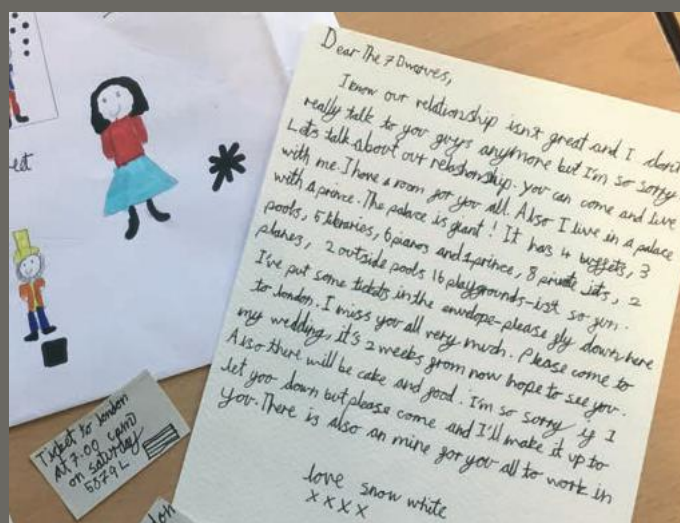 Dear The 7 Dworves,
I know our relationship isn't great and I don't
really talk to you guys anymore but I'm so sorry.
Let's talk about our relashonship. you can come and live
with me. I have a room for you all. Also I live in a palace
with a prince. The palace is giant! It has 4 buffets, 3
pools, 5 libraries, 6 pianos and 1 prince, 8 private jets, 2
planes, 2 outside pools 16 playgrounds-ist so fun.
I've put some tickets in the envelope-please fly down here
to london. I miss you all very much. Please come to
my wedding, it's 2 weeks from now hope to see you.
Also there will be cake and food. I'm so sorry if I
let you down but please come and I'll make it up to
you. There is also an mine for you all to work in
love snow white
xxxx
Ticket to london
At 7:00 (pm)
on saturday
5079L